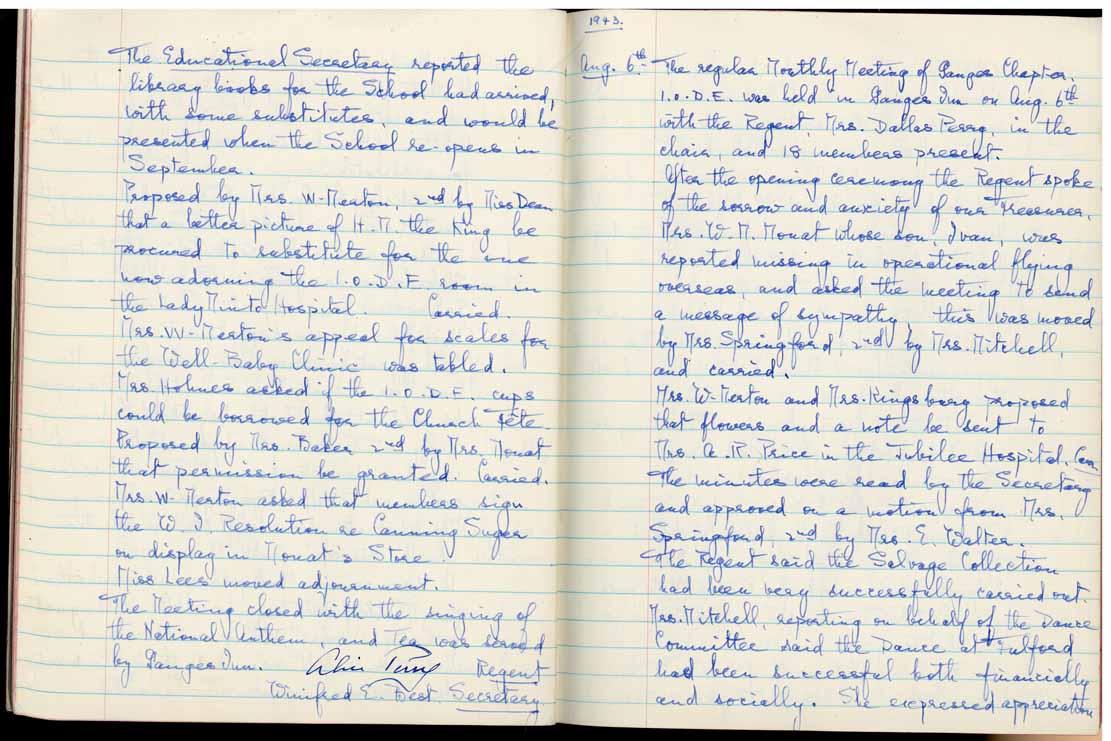 The Educational Secretary reported the
library books for the School had arrived,
with some substitutes, and would be
presented when the School re-opens in
September.
Proposed by Mrs. W-Merton, 2nd by Miss Dean
that a better picture of H.M. the King be
procured to substitute for the one
now adorning the I.O.D.E. room in
the Lady Minto Hospital. Carried.
Mrs. W-Merton's appeal for scales for
the Well-Baby Clinic was tabled.
Mrs. Holmes asked if the I.O.D.E. cups
could be borrowed for the Church Fête.
Proposed by Mrs. Baker 2nd by Mrs. Mouat
that permission be granted. Carried.
Mrs. W-Merton asked that members sign
the W.I. Resolution re Canning Sugar
on display in Mouat's Store.
Miss Lees moved adjournment.
The Meeting closed with the singing of
the National Anthem, and Tea was served
by Ganges Inn. Regent
Winifred E. Best. Secretary
1943.
Aug. 6th The regular Monthly Meeting of Ganges Chapter,
I.O.D.E. was held in Ganges Inn on Aug. 6th
with the Regent, Mrs. Dallas Perry, in the
chair, and 18 members present.
After the opening ceremony the Regent spoke
of the sorrow and anxiety of our Treasurer,
Mrs. W. M. Mouat whose son, Ivan, was
reported missing in operational flying
overseas, and asked the meeting to send
a message of sympathy, this was moved
by Mrs. Springford, 2nd by Mrs. Mitchell,
and carried.
Mrs. W-Merton and Mrs. Kingsbury proposed
that flowers and a note be sent to
Mrs. A. R. Price in the Jubilee Hospital. Carr.
The minutes were read by the Secretary
and approved on a motion from Mrs.
Springford, 2nd by Mrs. E. Walter.
The Regent said the Salvage Collection
had been very successfully carried out.
Mrs. Mitchell, reporting on behalf of the Dance
Committee said the Dance at Fulford
had been successful both financially
and socially. She expressed appreciation